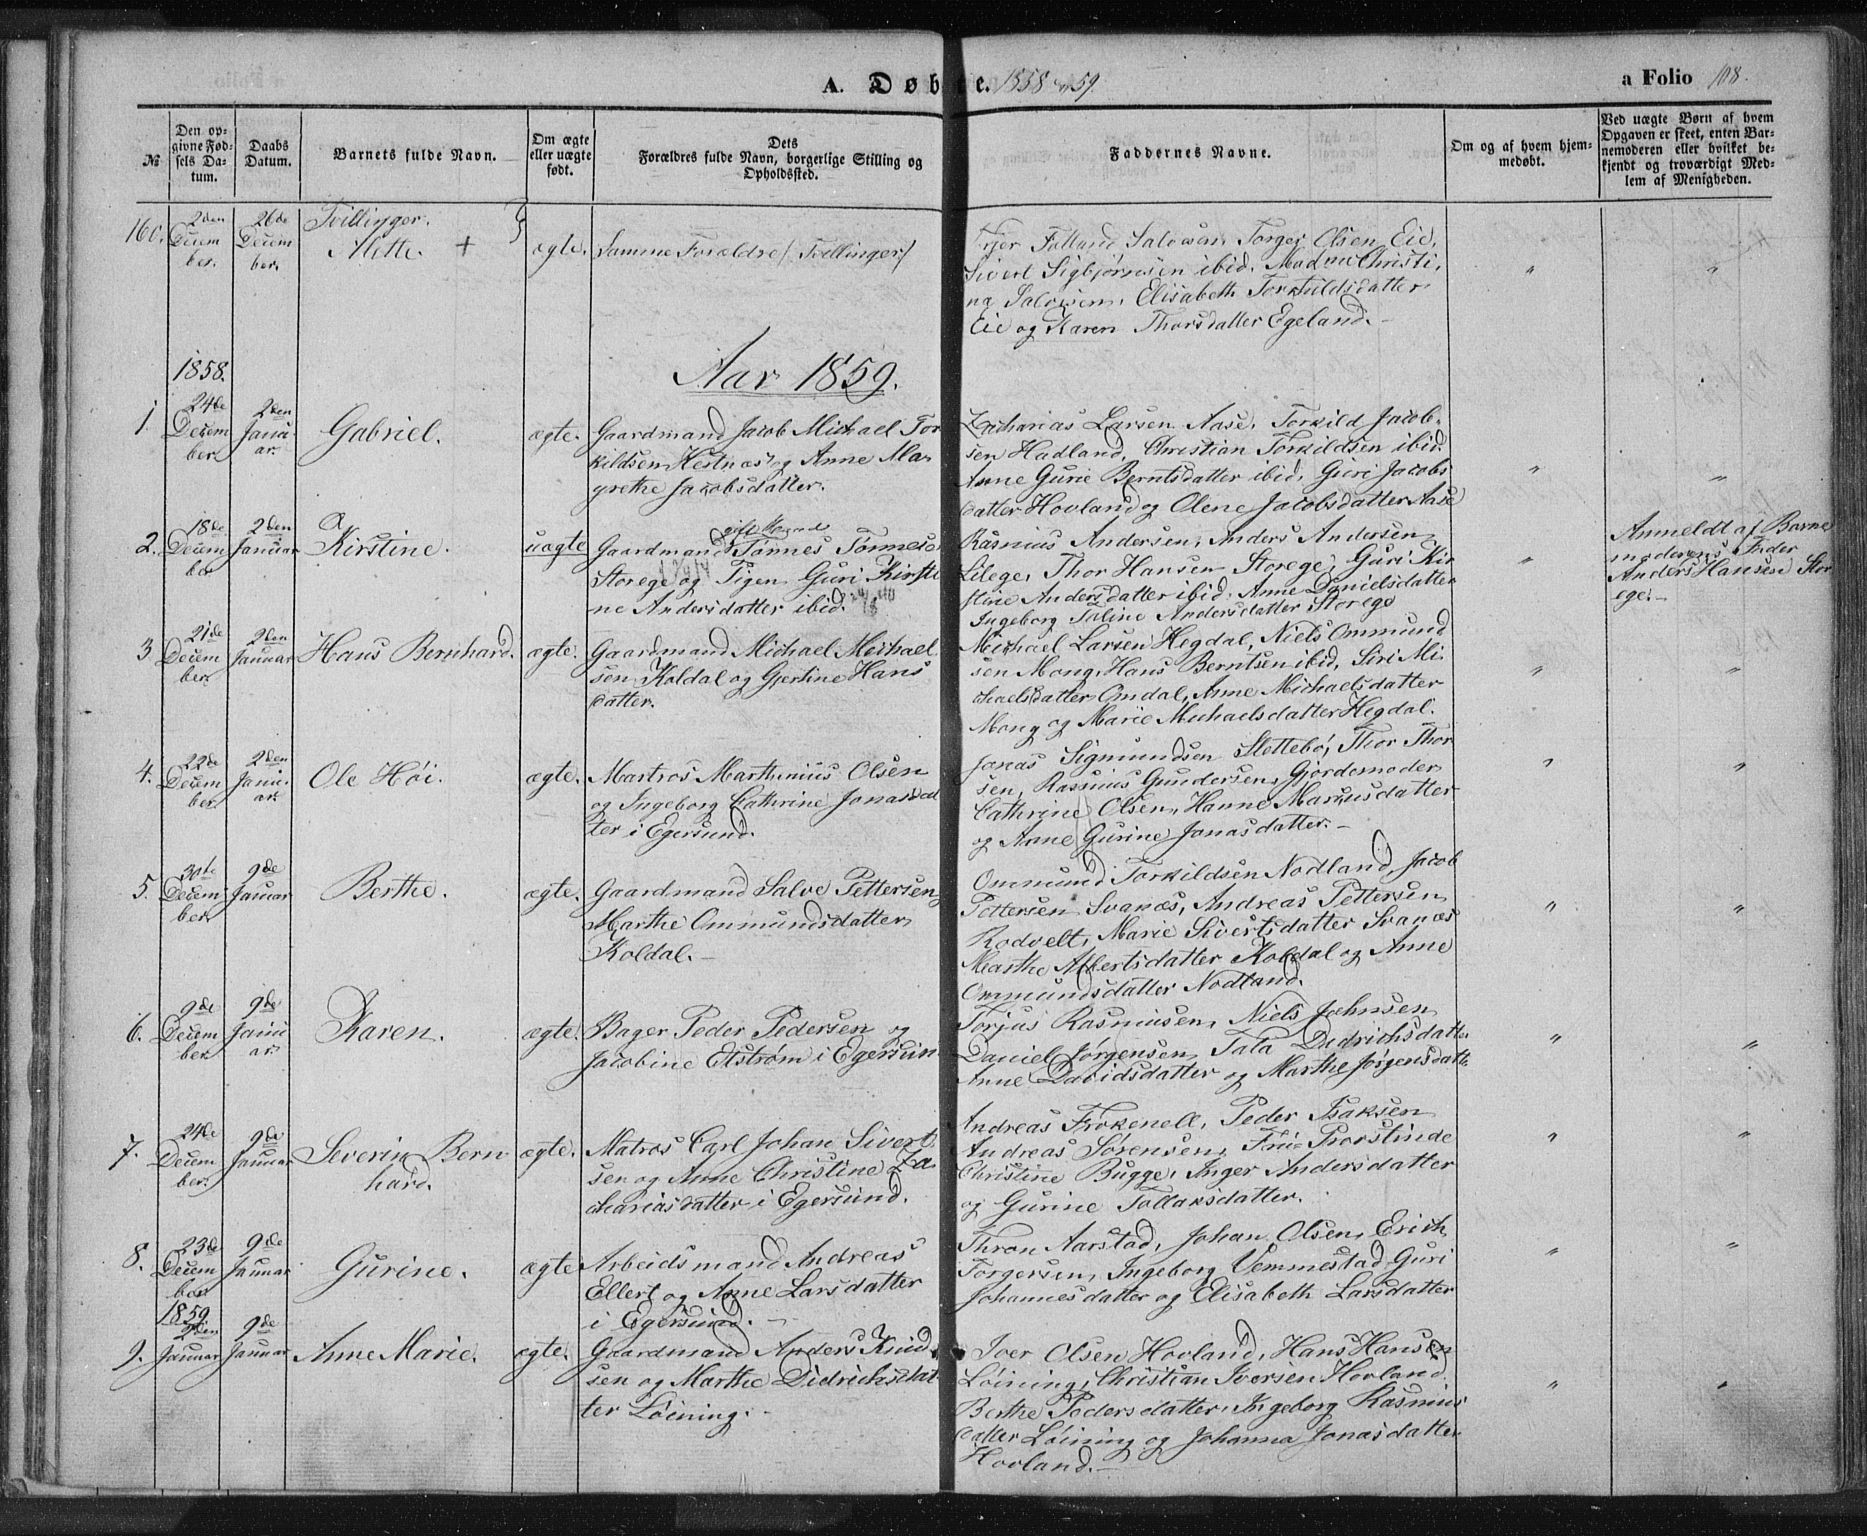 A. Døbte. 1858 og 59.
a Folio 108.
№
Den opgivne Fødsels Datum.
Daabs Datum.
Barnets fulde Navn.
Om ægte eller uægte født.
Dets Forældres fulde Navn, borgerlige Stilling og Opholdssted.
Faddernes Navne.
Om og af hvem hjemmedøbt.
Ved uægte Børn af hvem Opgaven er skeet, enten Barnemoderen eller hvilket bekjendt og troværdigt Medlem af Menigheden.
160.
2den
Decem
ber.
26de
Decem
ber.
Tvillinger.
Mette. +
ægte.
Samme Forældre / Tvillinger /
Folland Salvesen, Torger Olsen Eie,
Sivert Sigbjørnsen ibid. Madme Christi,
na Salvesen, Elisabeth Torkildsdatter
Eie og Karen Thorsdatter Egeland.-
1858.
Aar 1859.
1.
24de
Decem
ber.
2den
Janu
ar.
Gabriel.
ægte.
Gaardmand Jacob Michael Tor
kildsen Hestnæs og Anne Ma
grethe Jacobsdatter.
Zacharias Larsen Aase, Torkild Jacob-
sen Hadland, Christian Torkildsen ibid.
Anne Gurie Berntsdatter ibid, Guri Jacobs
datter Hovland og Olene Jacobsdatter Aase
"
"
2.
18de
Decem
ber
2den
Januar
Kirstine.
uægte
gift Mand
Gaardmand Tønnes Tønnesen
Storege og Pigen Guri Kirsti
ne Andersdatter ibid.
Rasmus Andersen, Anders Andersen
Lilege, Thor Hansen Storege, Guri Kir
stine Andersdatter ibid. Anne Danielsdatter
Ingeborg Taline Andersdatter Storege
"
Anmeldt af Barne
moderens Fader
Anders Hansen Stor
ege.-
3
21de
Decem
ber.
2den
Januar
Hans Bernhard.
ægte.
Gaardmand Michael Michael
sen Koldal og Gjertine Hans
datter.
Michael Larsen Hegdal, Niels Ommund
sen Mong, Hans Berntsen ibid, Siri Mi
chaelsdatter Omdal, Anne Michaelsdatter
Mong og Marie Michaelsdatter Hegdal.
"
"
4.
22de
Decem
ber.
2den
Janu-
ar.
Ole Høi.
ægte.
Matros Marthinius Olsen
og Ingeborg Cathrine Jonasdat
ter i Egersund.
Jonas Sigmundsen Slettebø, Thor Thor
sen, Rasmus Gundersen, Gjordemoder
Cathrine Olsen, Hanne Mariusdatter
og Anne Gurine Jonasdatter.-
"
"
5.
30te
Decem
ber.
9de
Januar
Berthe.
ægte.
Gaardmand Salve Pettersen
Marthe Ommundsdatter
Koldal.-
Ommund Torkildsen Nodland, Jacob
Pettersen Svanæs, Andreas Pettersen
Rodvelt, Marie Sivertsdatter Svanæs
Marthe Albertsdatter Koldal og Anne
Ommundsdatter Nodland.
"
"
6.
9de
Decem
ber.
9de
Janu
ar.
Karen.
ægte.
Bager Peder Pedersen og
Jacobine Elstrøm i Egersun
Torjus Rasmusen, Niels Johnsen
Daniel Jørgensen, Tala Didrichsdatter
Anne Davidsdatter og Marthe Jørgensdatte
"
"
7.
24de
Decem
ber.
9de
Januar
Severin Bern
hard.
ægte.
Matros Carl Johan Sivert
sen og Anne Christine Za
chariasdatter i Egersund.
Andreas Frokenell, Peder Isaksen
Andreas Sørensen, Frue Provstinde
Christine Bugge, Inger Andersdatter
og Gurine Tollaksdatter.
"
"
8.
23de
Decem
ber
9de
Januar
Gurine.
ægte
Arbeidsmand Andreas
Ellert og Anne Larsdatter
i Egersund.-
Thron Aarstad, Johan Olsen, Erich
Torgersen, Ingeborg Vemmestad, Guri
Johannesdatter og Elisabeth Larsdatter
"
"
1859.
9.
2den
Januar
9de
Januar
Anne Marie.
ægte.
Gaardmand Anders Knud
sen og Marthe Didrichsdat
ter Løining.-
Iver Olsen Hovland, Hans Hansen
Løining, Christian Iversen Hovland.
Berthe Pedersdatter, Ingeborg Rasmus
datter Løining og Johanna Jonasdatter
Hovland.-
"
"